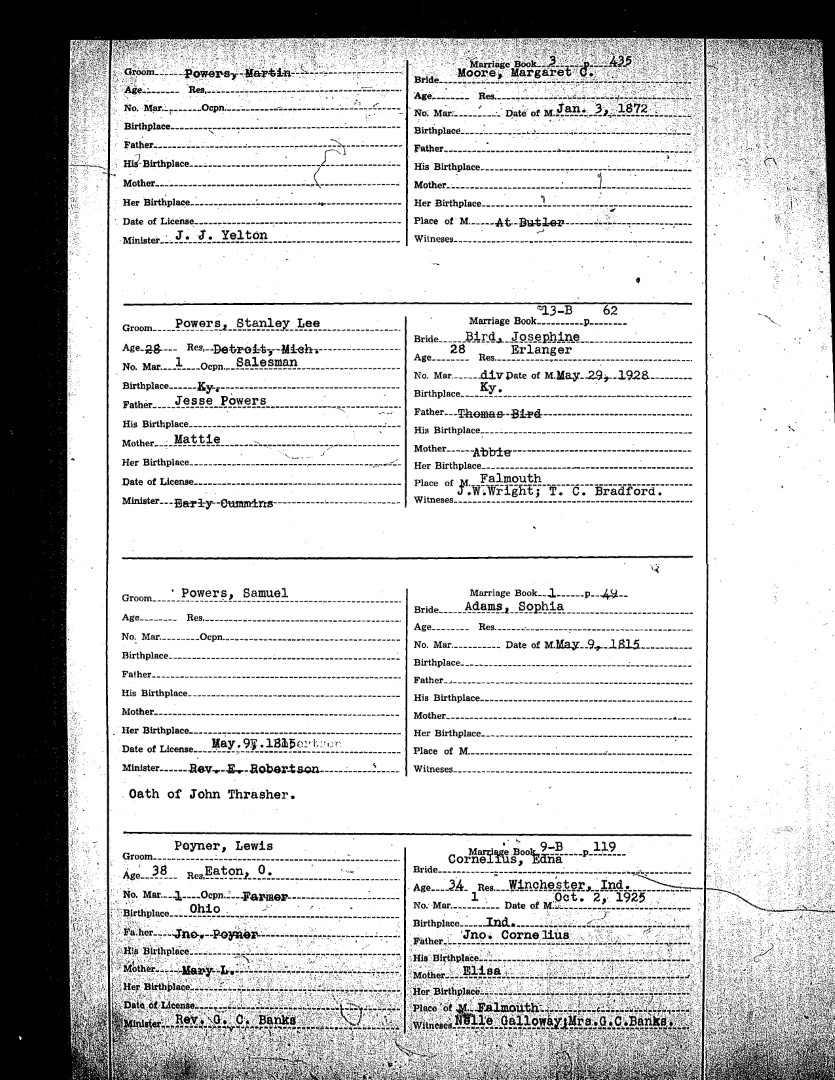 Groom Powers, Martin
Age Res.
No. Mar. Ocpn.
Birthplace
Father
His Birthplace
Mother
Her Birthplace
Date of License
Minister J. J. Yelton
Marriage Book 3 p. 435
Bride Moore, Margaret C.
Age Res.
No. Mar. Date of M. Jan. 3, 1872
Birthplace
Father
His Birthplace
Mother
Her Birthplace
Place of M. At Butler
Witnesses
Groom Powers, Stanley Lee
Age 28 Res. Detroit, Mich.
No. Mar. 1 Ocpn. Salesman
Birthplace Ky.
Father Jesse Powers
His Birthplace
Mother Mattie
Her Birthplace
Date of License
Minister Early Cummins
Marriage Book 13-B p. 62
Bride Bird, Josephine
Age 28 Res. Erlanger
No. Mar. div Date of M. May 29, 1928
Birthplace Ky.
Father Thomas Bird
His Birthplace
Mother Abbie
Her Birthplace
Place of M. Falmouth
Witnesses J.W.Wright; T. C. Bradford.
Groom Powers, Samuel
Age Res.
No. Mar. Ocpn.
Birthplace
Father
His Birthplace
Mother
Her Birthplace
Date of License May. 9, 1815
Minister Rev. E. Robertson
Oath of John Thrasher.
Marriage Book 1 p. 49
Bride Adams, Sophia
Age Res.
No. Mar. Date of M. May 9, 1815
Birthplace
Father
His Birthplace
Mother
Her Birthplace
Place of M.
Witnesses
Groom Poyner, Lewis
Age 38 Res. Eaton, O.
No. Mar. 1 Ocpn. Farmer
Birthplace Ohio
Father Jno. Poyner
His Birthplace
Mother Mary L.
Her Birthplace
Date of License
Minister Rev. G. C. Banks
Marriage Book 9-B p 119
Bride Cornelius, Edna
Age 34 Res. Winchester, Ind.
No. Mar. 1 Date of M. Oct. 2, 1925
Birthplace Ind.
Father Jno. Cornelius
His Birthplace
Mother Elisa
Her Birthplace
Place of M. Falmouth
Witnesses Nelle Galloway;Mrs.G.C.Banks.